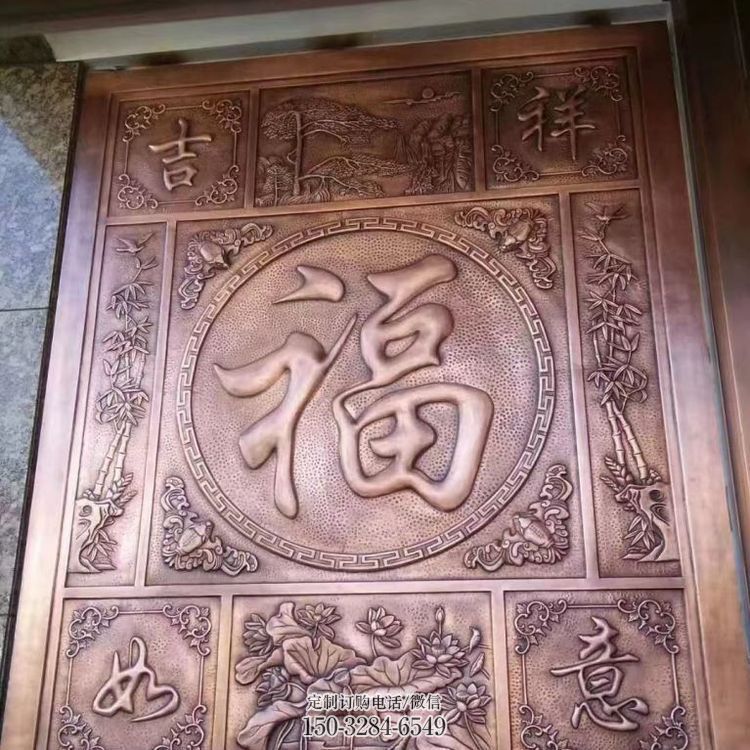 吉 祥
福
如 意
定制订购电话/微信
150-3284-6549